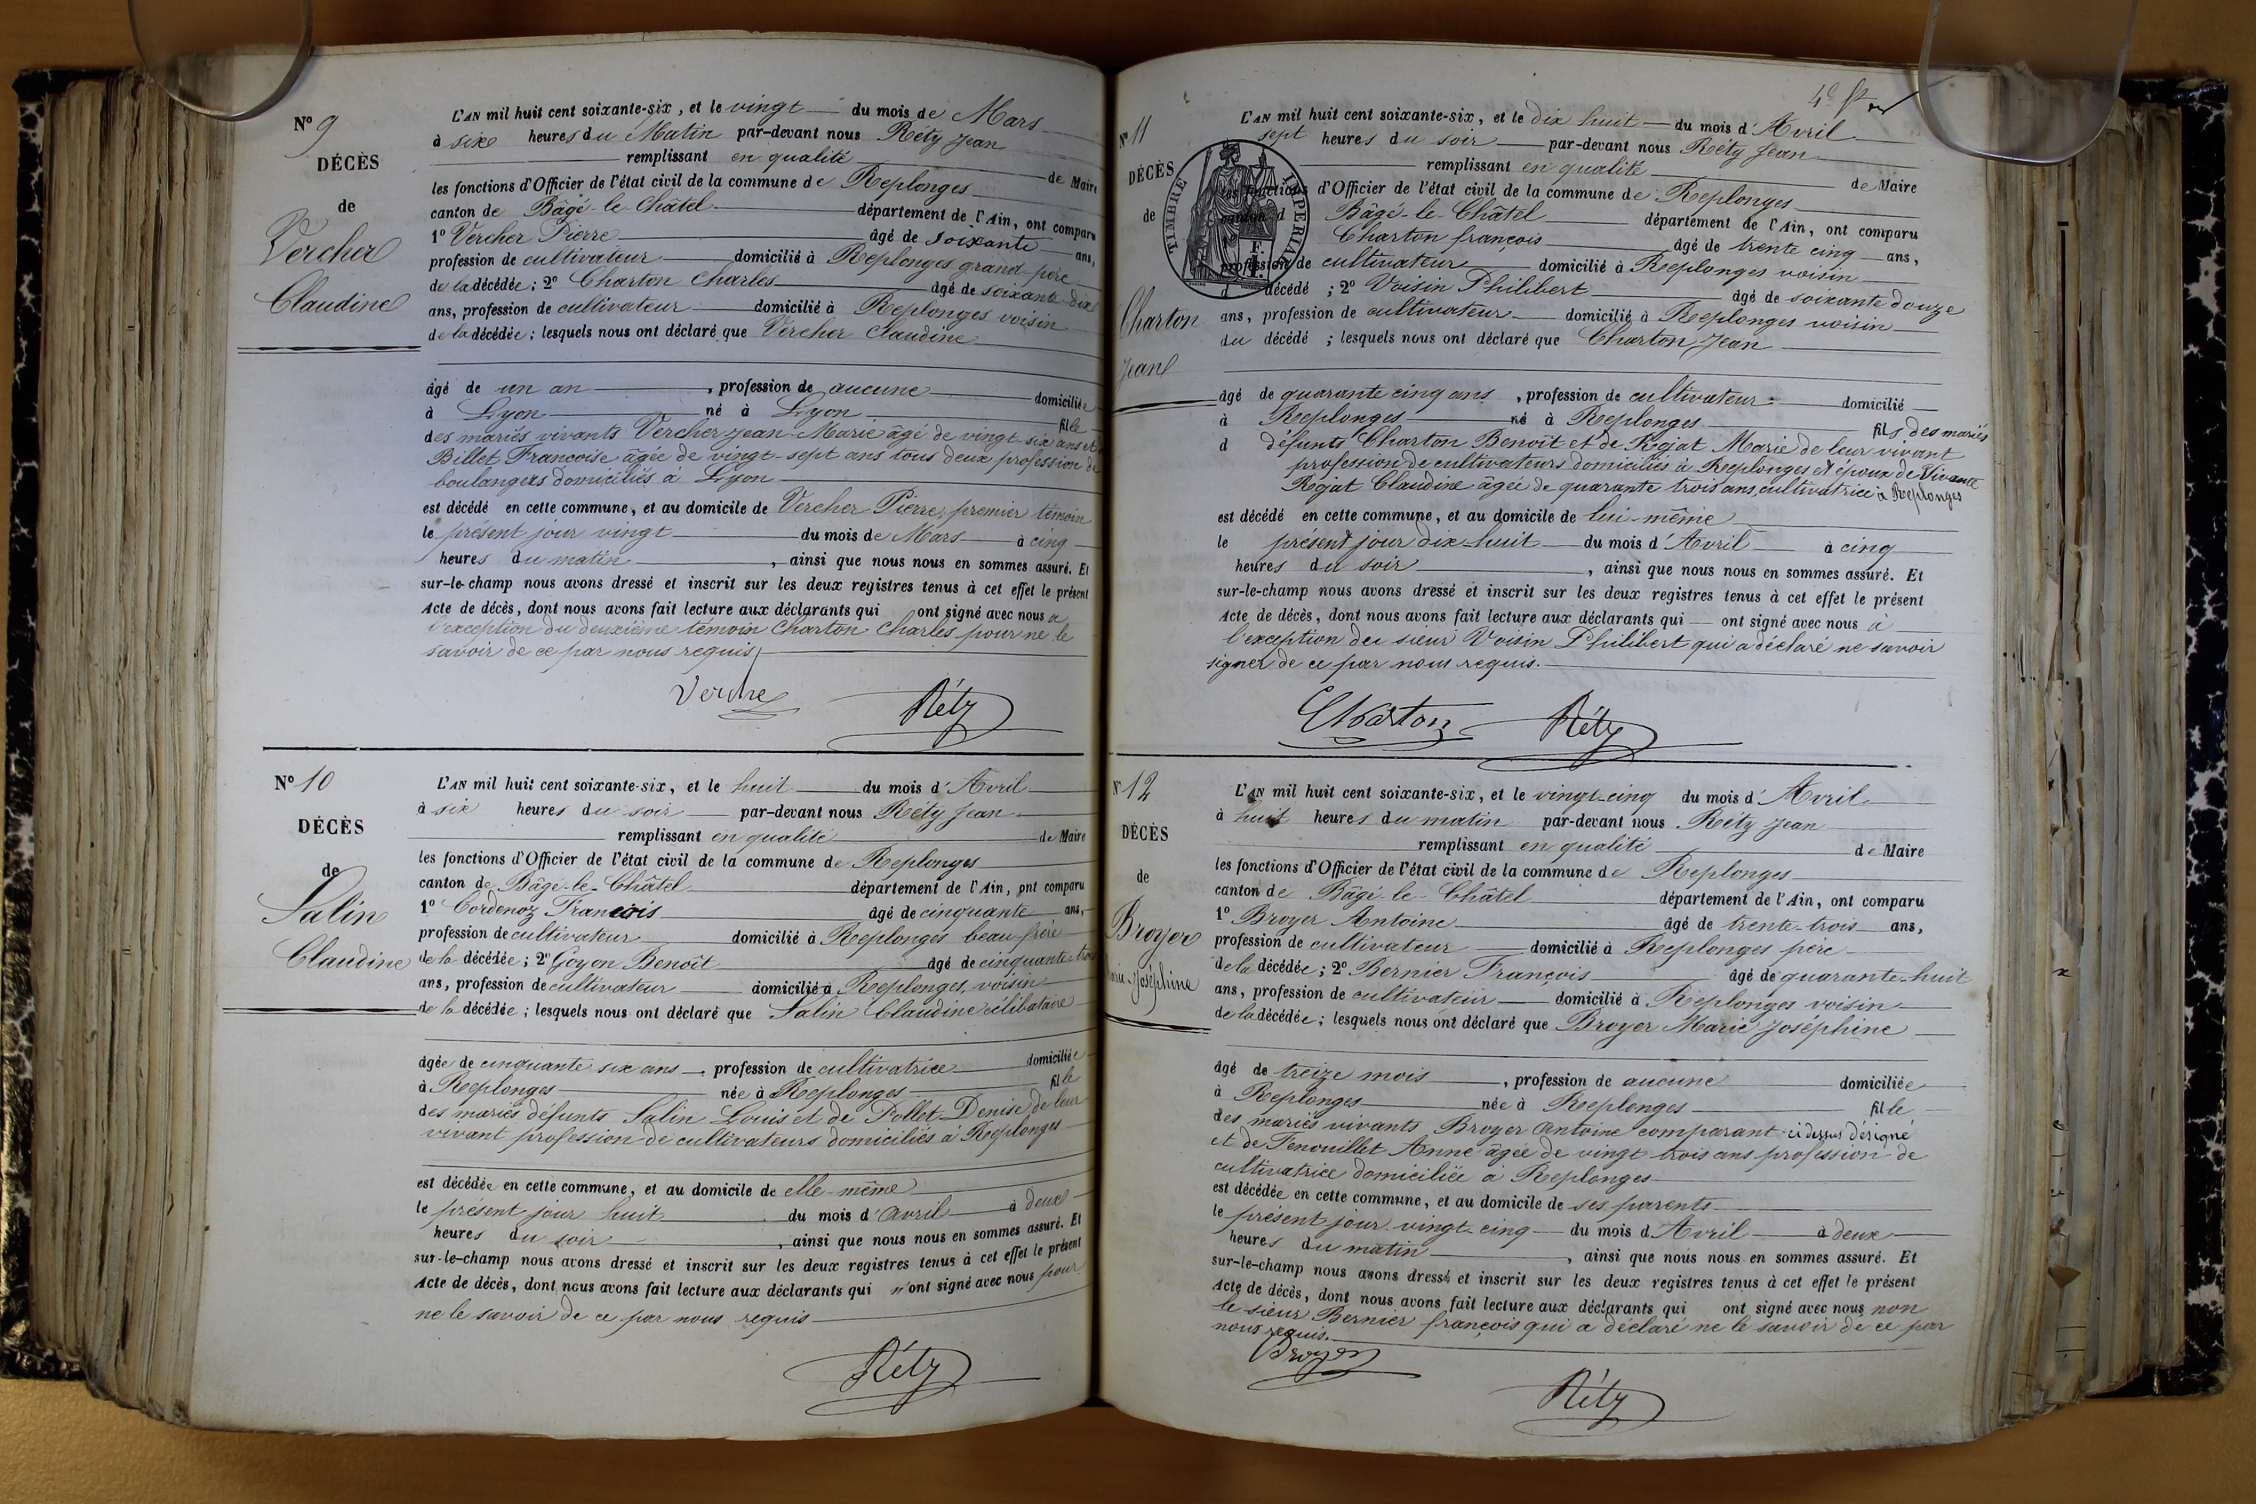 N° 9
DÉCÈS
de
Vercher
Claudine
L'AN mil huit cent soixante-six, et le vingt du mois de Mars
à six heures du Matin par-devant nous Réty Jean
remplissant en qualité de Maire
les fonctions d'Officier de l'état civil de la commune de Replonges
canton de Bâgé-le-Châtel département de l'Ain, ont comparu
1° Vercher Pierre âgé de soixante ans,
profession de cultivateur domicilié à Replonges grand-père
de la décédée ; 2° Charton Charles âgé de soixante dix
ans, profession de cultivateur domicilié à Replonges voisin
de la décédée ; lesquels nous ont déclaré que Vercher Claudine
âgé de un an , profession de aucune domiciliée
à Lyon né à Lyon fille
des mariés vivants Vercher Jean-Marie âgé de vingt-six ans et
Billet Françoise âgée de vingt-sept ans tous deux profession de
boulangers domiciliés à Lyon
est décédé en cette commune, et au domicile de Vercher Pierre, premier témoin
le présent jour vingt du mois de Mars à cinq
heures du matin , ainsi que nous nous en sommes assuré. Et
sur-le-champ nous avons dressé et inscrit sur les deux registres tenus à cet effet le présent
Acte de décès, dont nous avons fait lecture aux déclarants qui ont signé avec nous a
l'exception du deuxième témoin Charton Charles pour ne le
savoir de ce par nous requis
Verche Réty
N° 10
DÉCÈS
de
Salin
Claudine
L'AN mil huit cent soixante-six, et le huit du mois d'Avril
à six heures du soir par-devant nous Réty Jean
remplissant en qualité de Maire
les fonctions d'Officier de l'état civil de la commune de Replonges
canton de Bâgé-le-Châtel département de l'Ain, ont comparu
1° Cordenoz Francois âgé de cinquante ans,
profession de cultivateur domicilié à Replonges beau-frère
de la décédée ; 2° Goyon Benoît âgé de cinquante trois
ans, profession de cultivateur domicilié à Replonges, voisin
de la décédée ; lesquels nous ont déclaré que Salin Claudine célibataire
âgée de cinquante six ans , profession de cultivatrice domiciliée
à Replonges née à Replonges fille
des mariés défunts Salin Louis et de Pollet Denise de leur
vivant profession de cultivateurs domiciliés à Replonges
est décédée en cette commune, et au domicile de elle-même
le présent jour huit du mois d'avril à deux
heures du soir , ainsi que nous nous en sommes assuré. Et
sur-le-champ nous avons dressé et inscrit sur les deux registres tenus à cet effet le présent
Acte de décès, dont nous avons fait lecture aux déclarants qui n'ont signé avec nous pour
ne le savoir de ce par nous requis
Réty
N° 11
DÉCÈS
de
Charton
Jean
TIMBRE IMPERIAL
L'AN mil huit cent soixante-six, et le dix huit du mois d'Avril
sept heures du soir par-devant nous Réty Jean
remplissant en qualité de Maire
les fonctions d'Officier de l'état civil de la commune de Replonges
canton d Bâgé-le-Châtel département de l'Ain, ont comparu
Charton françois âgé de trente cinq ans,
profession de cultivateur domicilié à Replonges voisin
d décédé ; 2° Voisin Philibert âgé de soixante douze
ans, profession de cultivateur domicilié à Replonges voisin
du décédé ; lesquels nous ont déclaré que Charton Jean
âgé de quarante cinq ans , profession de cultivateur domicilié
à Replonges né à Replonges fils des mariés
d défunts Charton Benoît et de Rojat Marie de leur vivant
profession de cultivateurs domiciliés à Replonges et époux de vivante
Rojat Claudine âgée de quarante trois ans, cultivatrice à Replonges
est décédé en cette commune, et au domicile de lui-même
le présent jour dix-huit du mois d'Avril à cinq
heures du soir , ainsi que nous nous en sommes assuré. Et
sur-le-champ nous avons dressé et inscrit sur les deux registres tenus à cet effet le présent
Acte de décès, dont nous avons fait lecture aux déclarants qui ont signé avec nous à
l'exception du sieur Voisin Philibert qui a déclaré ne savoir
signer de ce par nous requis.
Charton Réty
N° 12
DÉCÈS
de
Broyer
Joséphine
L'AN mil huit cent soixante-six, et le vingt-cinq du mois d'Avril
à huit heures du matin par-devant nous Réty Jean
remplissant en qualité de Maire
les fonctions d'Officier de l'état civil de la commune de Replonges
canton de Bâgé-le-Châtel département de l'Ain, ont comparu
1° Broyer Antoine âgé de trente-trois ans,
profession de cultivateur domicilié à Replonges père
de la décédée ; 2° Bernier François âgé de quarante-huit
ans, profession de cultivateur domicilié à Replonges voisin
de la décédée ; lesquels nous ont déclaré que Broyer Marie Joséphine
âgé de treize mois , profession de aucune domiciliée
à Replonges née à Replonges fille
des mariés vivants Broyer Antoine comparant ci dessus désigné
et de Fenouillet Anne âgée de vingt trois ans profession de
cultivatrice domiciliée à Replonges
est décédée en cette commune, et au domicile de ses parents
le présent jour vingt-cinq du mois d'Avril à deux
heures du matin , ainsi que nous nous en sommes assuré. Et
sur-le-champ nous avons dressé et inscrit sur les deux registres tenus à cet effet le présent
Acte de décès, dont nous avons fait lecture aux déclarants qui ont signé avec nous non
le sieur Bernier françois qui a déclaré ne le savoir de ce par
nous requis.
Broyer
Réty